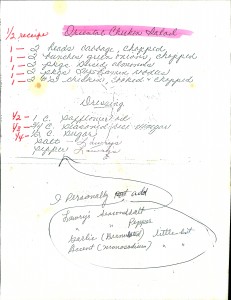 1/2 recipe Oriental Chicken Salad
1 — 2 heads cabbage, chopped
1 — 2 bunches green onions, chopped
1 — 2 pkgs sliced almonds
1 — 2 pkgs Top Ramen noodles
chicken, cooked & chopped
Dressing
1/2 — 1 C. Safflower oil
Seasoned rice vinegar
1/4 — C. Sugar
Salt — Lawrys
Pepper Lawrys
I Personally add
Lawry's Seasonsalt
" " Pepper
Garlic little bit
Accent